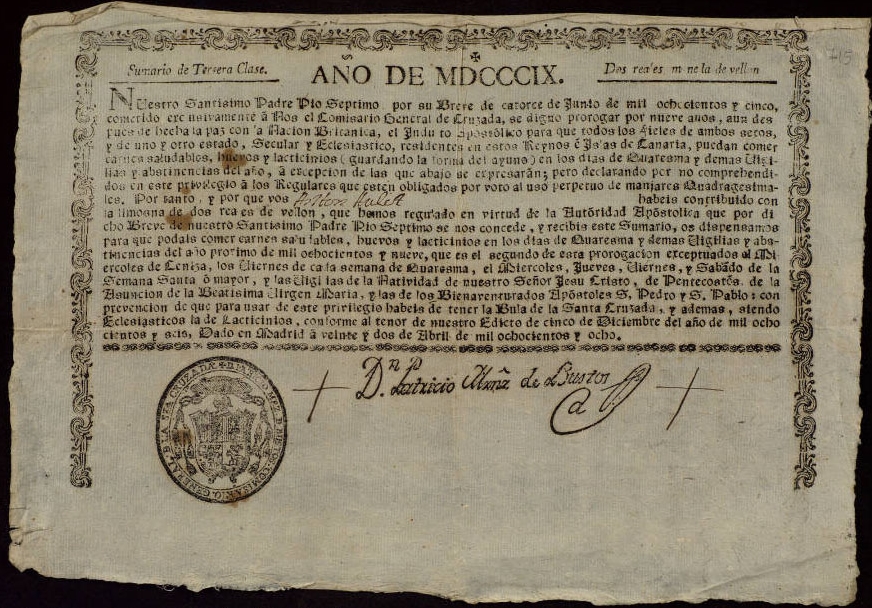 Sumario de Tersera Clase.
AÑO DE MDCCCIX.
Dos reales moneda de vellon
NUestro Santisimo Padre Pio Septimo por su Breve de catorce de Junio de mil ochocientos y cinco,
cometido exclusivamente à Nos el Comisario General de Cruzada, se digno prorogar por nueve años, aun des
pues de hecha la paz con la Nacion Britanica, el Indulto Apostólico para que todos los fieles de ambos sexos,
y de uno y otro estado, Secular y Eclesiastico, residentes en estos Reynos è Islas de Canaria, puedan comer
carnes saludables, huevos y lacticinios (guardando la forma del ayuno) en los dias de Quaresma y demas Vigi-
lias y abstinencias del año, à excepcion de las que abajo se expresarán; pero declarando por no comprehendi-
dos en este privilegio à los Regulares que esten obligados por voto al uso perpetuo de manjares Quadragesima-
les. Por tanto, y por que vos habeis contribuido con
la limosna de dos reales de vellon, que hemos regulado en virtud de la Autoridad Apostolica que por di
cho Breve de nuestro Santisimo Padre Pio Septimo se nos concede, y recibis este Sumario, os dispensamos
para que podais comer carnes saludables, huevos y lacticinios en los dias de Quaresma y demas Vigilias y abs-
tinencias del año proximo de mil ochocientos y nueve, que es el segundo de esta prorogacion exceptuados el Mi-
ercoles de Ceniza, los Viernes de cada semana de Quaresma, el Miercoles, Jueves, Viernes, y Sabado de la
Semana Santa ò mayor, y las Vigilias de la Natividad de nuestro Señor Jesu Cristo, de Pentecostés, de la
Asuncion de la Beatisima Virgen Maria, y las de los Bienaventurados Apóstoles S. Pedro y S. Pablo: con
prevencion de que para usar de este privilegio habeis de tener la Bula de la Santa Cruzada, y ademas, siendo
Eclesiasticos la de Lacticinios, conforme al tenor de nuestro Edicto de cinco de Diciembre del año de mil ocho
cientos y seis, Dado en Madrid à veinte y dos de Abril de mil ochocientos y ocho.
Dn. Patricio Mrnz de Bustos
COMISARIO GENERAL D LA STA CRUZADA